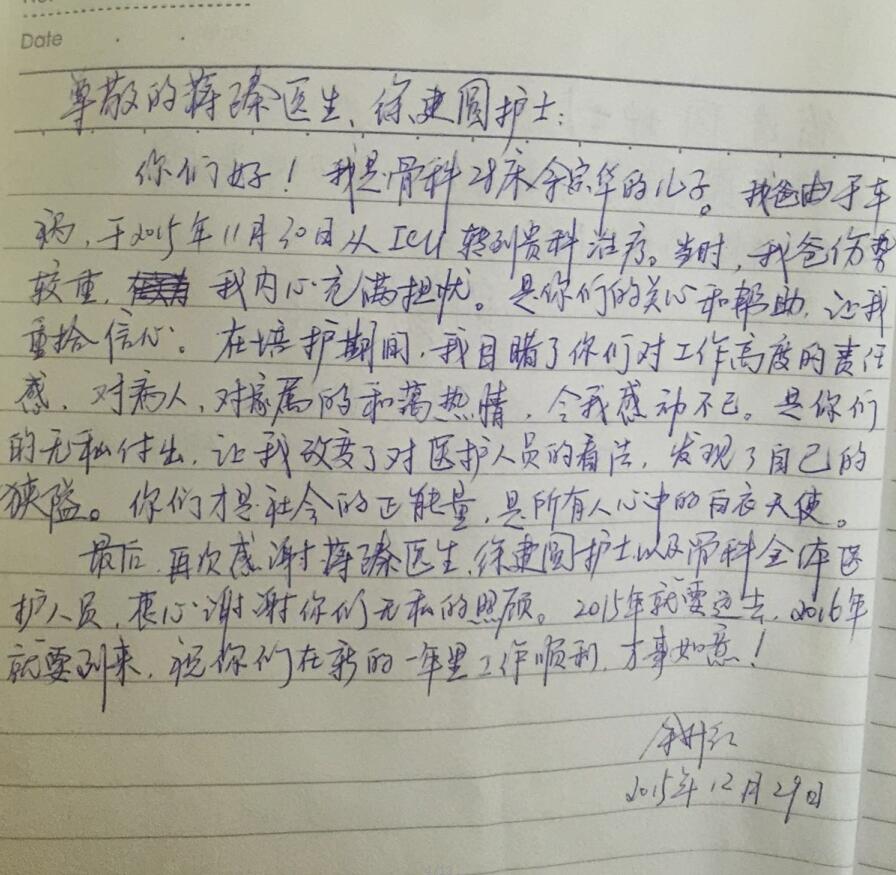 Date
尊敬的蒋臻医生、徐建圆护士：
你们好！我是骨科28床余宗华的儿子。我爸由于车
祸，于2015年11月30日从ICU转到贵科治疗。当时，我爸伤势
较重，我内心充满担忧。是你们的关心和帮助，让我
重拾信心。在培护期间，我目睹了你们对工作高度的责任
感，对病人，对家属的和蔼热情，令我感动不已。是你们
的无私付出，让我改变了对医护人员的看法，发现了自己的
狭隘。你们才是社会的正能量，是所有人心中的白衣天使。
最后，再次感谢蒋臻医生，徐建圆护士以及骨科全体医
护人员，衷心谢谢你们无私的照顾。2015年就要过去，2016年
就要到来，祝你们在新的一年里工作顺利，万事如意！
2015年12月29日